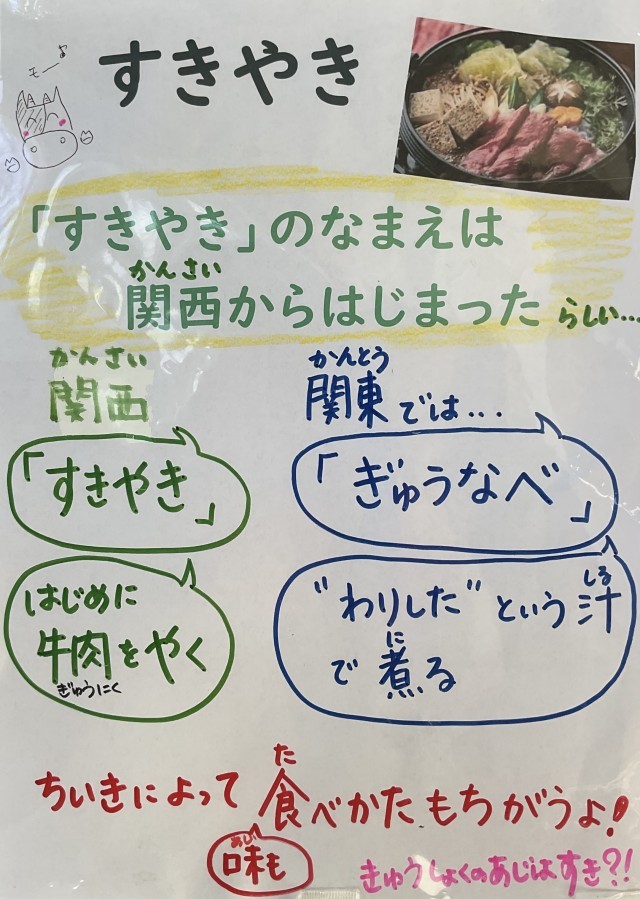 モー
すきやき
「すきやき」のなまえは
かんさい
関西からはじまった らしい...
かんさい
関西
「すきやき」
はじめに
牛肉をやく
ぎゅうにく
かんとう
関東では...
「ぎゅうなべ」
"わりした"という汁
しる
で煮る
に
ちいきによって食べかたもちがうよ!
た
味も
あじ
きゅうしょくのあじはすき?!